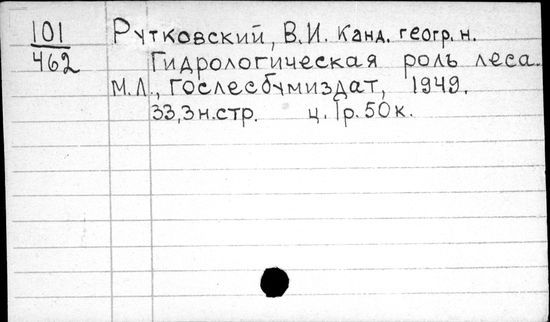 101 Рутковский, В.И. Канд. геогр. н.
462 Гидрологическая роль леса.
М.Л., Гослесбумиздат, 1949.
33,3 н.стр. ц. 1р. 50к.